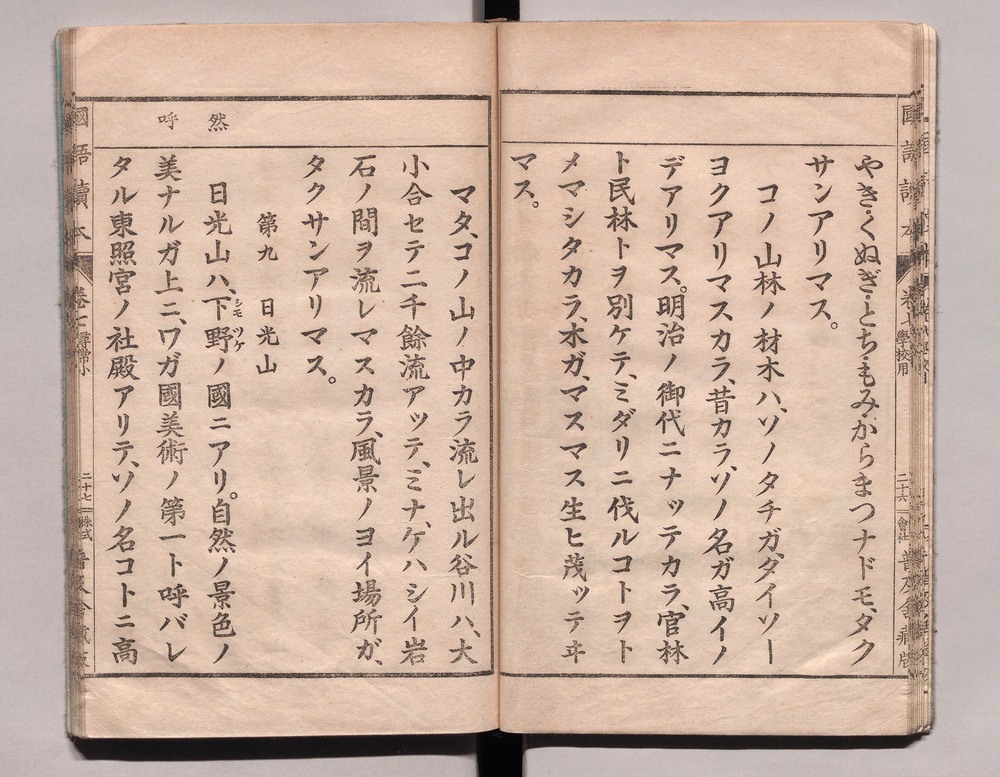 やき・くぬぎ・とち・もみ・からまつナドモ、タク
サンアリマス。
コノ山林ノ材木ハ、ソノタチガ、ダイソー
ヨクアリマスカラ、昔カラ、ソノ名ガ高イノ
デアリマス。明治ノ御代ニナッテカラ、官林
ト民林トヲ別ケテ、ミダリニ伐ルコトヲト
メマシタカラ、木ガ、マスマス生ヒ茂ッテヰ
マス。
マタ、コノ山ノ中カラ流レ出ル谷川ハ、大
小合セテ二千餘流アッテ、ミナ、ゲハシイ岩
石ノ間ヲ流レマスカラ、風景ノヨイ場所ガ、
タクサンアリマス。
第九 日光山
日光山ハ、下野ノ國ニアリ。自然ノ景色ノ
シモツケ
然
美ナルガ上ニ、ワガ國美術ノ第一ト呼バレ
呼
タル東照宮ノ社殿アリテ、ソノ名コトニ高
國語讀本
卷七
學校用
二十六
會社
普及舍藏版
國語讀本
卷七
尋常小
二十七
株式